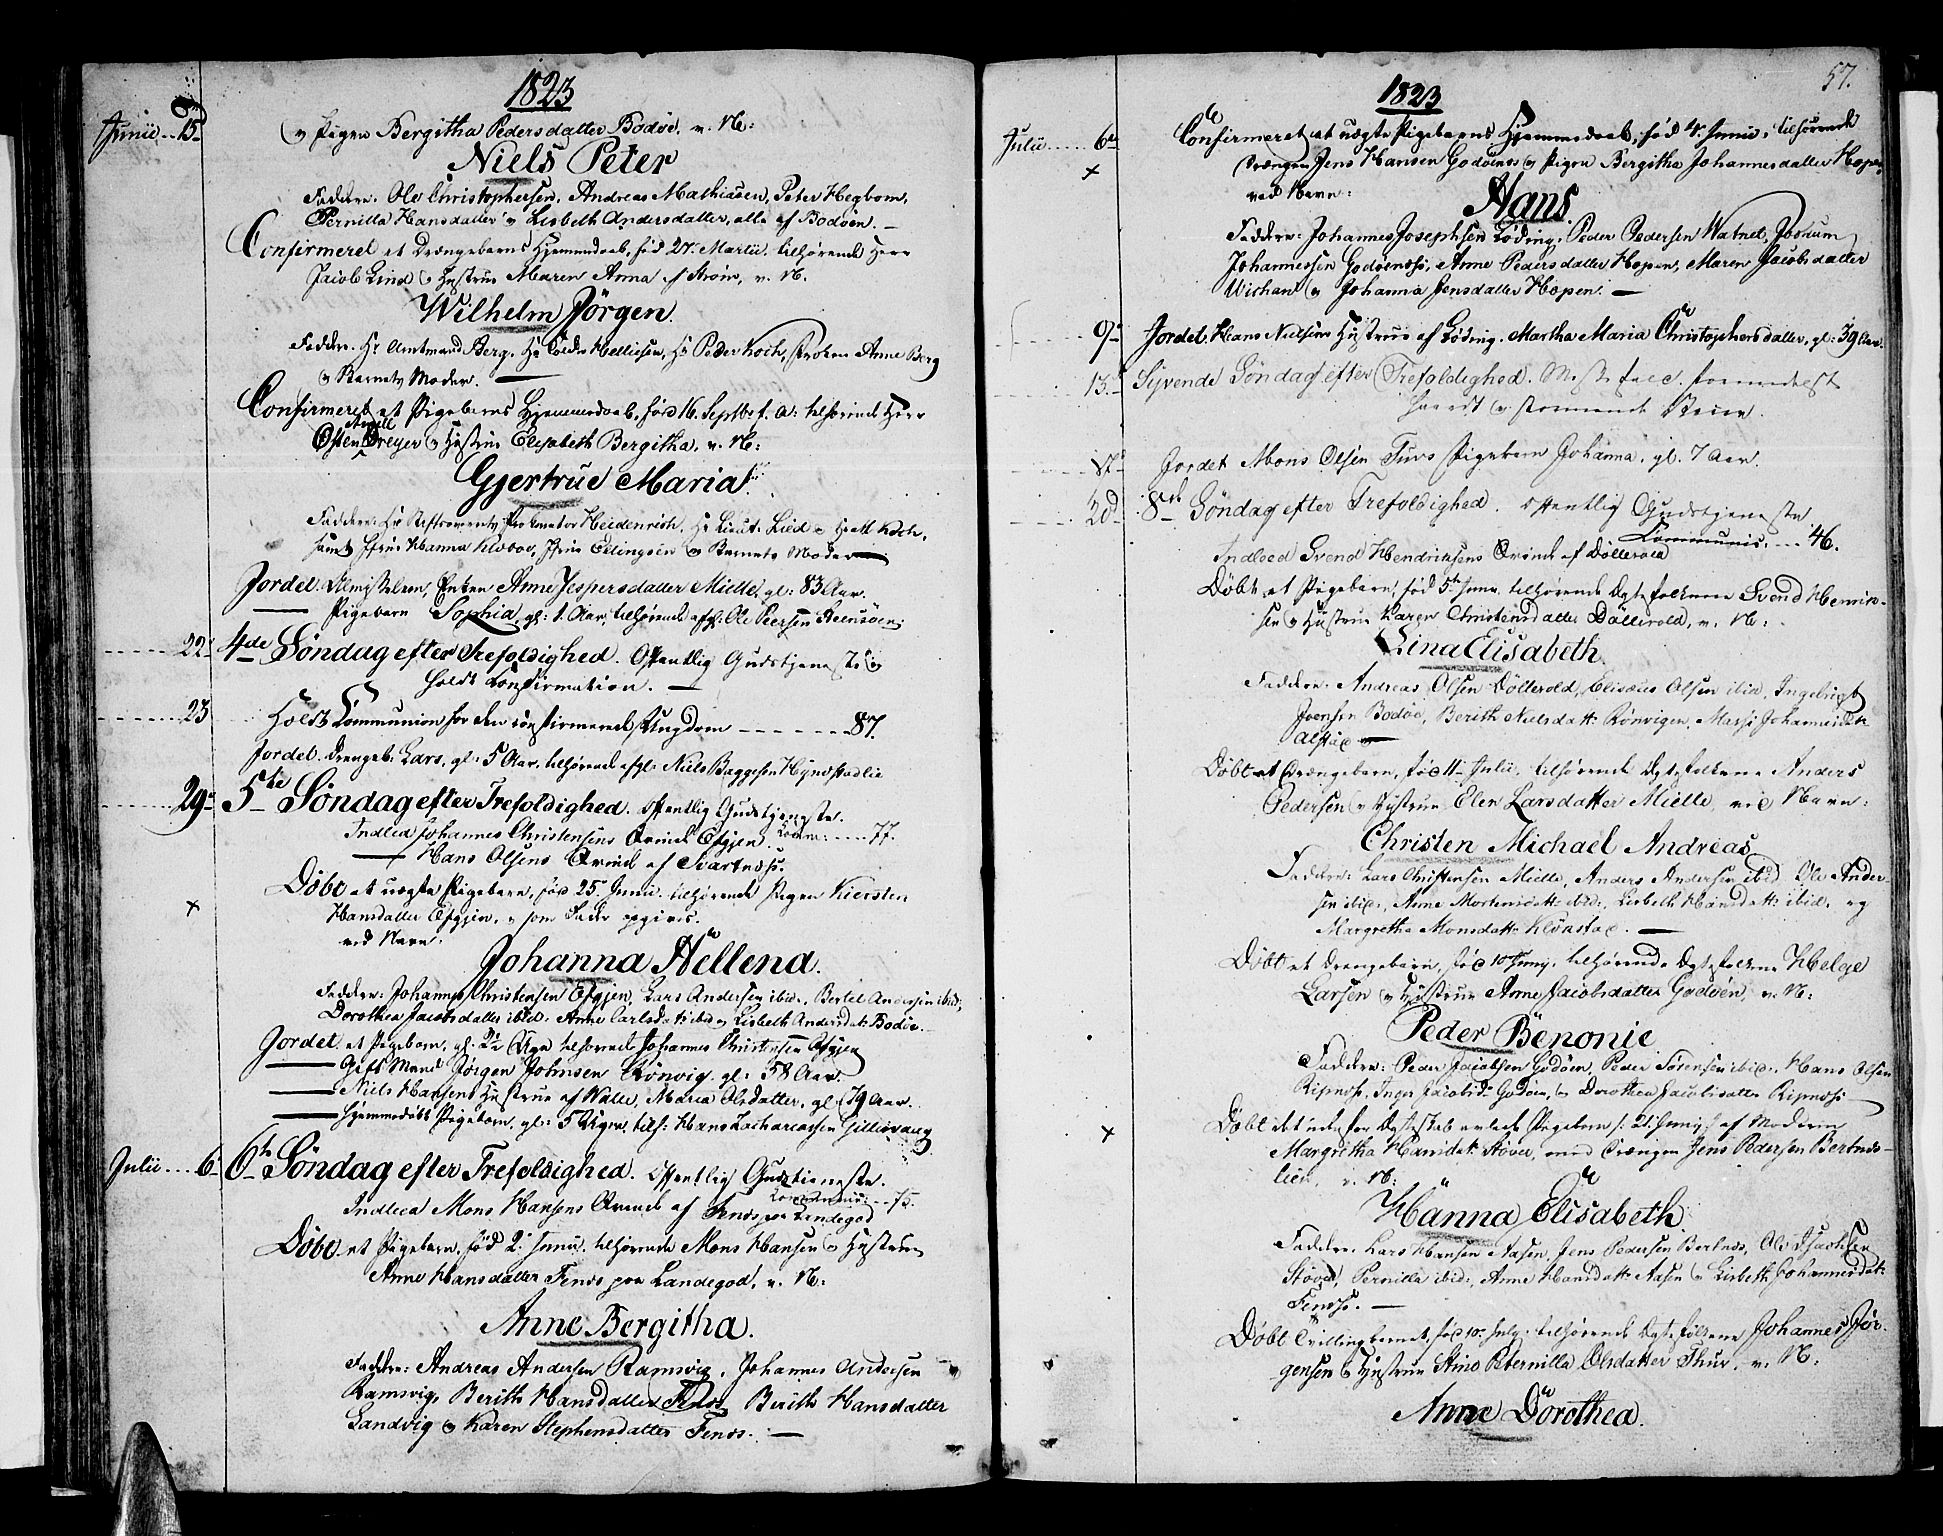 1823
Junii 15de
og Pigen Bergitha Pedersdatter Bodøe, v. N:
Niels Peter
Faddere: Ole Christophersen, Andreas Mathiasen, Peter Hegbom,
Pernilla Hansdatter og Lisbeth Andersdatter, alle af Bodøen. —
Confirmeret et Drængebarns Hjemmedaab, fød 27. Martii, tilhørende Herr
Jacob Lind og Hustrue Maren Anna, v. N.
Wilhelm Jörgen
Faddere: Hr Amtmand Berg, Hr Hellisen, Hr Peder Koch, Anne Berg
og Barnets Moder. —
Confirmeret et Pigebarns Hjemmedaab, fød 16. Septbr. f. A: tilhørende Herr
Angell
Osten Dreyer og Hustrue Elisabeth Bergitha, v. N:
Gjertrue Maria
Faddere: Hr Procurator Heidenrich, Hr Lieut: Lied, Koch,
samt Hanna, Edingsen og Barnets Moder —
Jordet: Anne Jespersdatter Mielle, gl: 83 Aar.
— Pigebarn Sophia, gl: 1 Aar, tilhørende Ole Peersen
22 4de Söndag efter Trefoldighed. Offentlig Gudstjeneste og
holdt Confirmation. —
23 Holdt Communion for den confirmerede Ungdom 87.
Jordet Drengeb: Lars, gl: 5 Aar, tilhørende Niels Baggesen
29de 5te Söndag efter Trefoldighed. Offentlig Gudstjeneste.
Indled Johannes Christensens Qvinde Esgjen. Com: 77.
— Hans Olsens Qvinde af Svartnæss.
Døbt et uægte Pigebarn, fød 25. Junii, tilhørende Pigen Kiersten
Hansdatter Esgjen, som Fader opgives.
ved Navn.
Johanna Hellena.
Faddere: Johannes Christensen Esgjen, Lars Andersen ibid:, Bertel Andersen ibid:,
Dorothea Jacobsdatter ibid:, Anne Carlsdat: ibid og Lisbeth Andersdat: Bodøe.
Jordet et Pigebarn, gl: tilhørende Johannes Christensen Esgjen
— Gift Mand Jørgen Johnsen Rönvig. gl: 58 Aar.
— Niels Hansens Hustrue af Walle, Maria Olsdatter, gl: 79 Aar.
— hjemmedøbt Pigebarn, gl: 5 Uger, tilh: Hans Zachariassen
Julii 6. 6te Söndag efter Trefoldighed. Offentlig Gudstjeneste.
Communic: 75.
Indled Mons Hansens Qvinde af Fenes paa Landegod
Døbt et Pigebarn, fød 2. Junii, tilhørende Mons Hansen og Hustrue
Anne Hansdatter Fenes paa Landegod, v. N:
Anne Bergitha.
Faddere: Andreas Andersen Ramsvig, Johannes Andersen
Ramsvig, Berith Hansdatter Fenes, Berith Hansdatter
Landvig og Karen Stephensdatter Fenes. —
57.
1823
Julii 6te Confirmeret et uægte Pigebarns Hjemmedaab, fød 4. Junii, tilhørende
Drængen Jens Hansen Godøenes og Pigen Bergitha Johannesdatter Hopen,
ved Navn:
Hans
Faddere: Johannes Josephsen Löding, Peder Pedersen Watnet, Joachum
Johannessen Godøenes, Anne Pedersdatter Hopen, Maren Jacobsdatter
Wishan og Johanna Jensdatter Hopen. —
9de Jordet Hans Nielsens Hustrue af Löding, Martha Maria Christophersdatter, gl: 39 Aar.
13de Syvende Söndag efter Trefoldighed.
17de Jordet Mons Olsen Turs Pigebarn Johanna, gl. 7 Aar.
20de 8de Söndag efter Trefoldighed. Offentlig Gudstjeneste
Communic: 46.
Indled Svend Hendriksens Qvinde af Döllevold
Døbt et Pigebarn, fød 5te Juni, tilhørende Ægtefolkene Svend Henrik-
sen og Hustrue Karen Christensdatter Döllevold, v. N:
Lina Elisabeth
Faddere: Andreas Olsen Döllevold, Elisæus Olsen ibid, Ingebrigt
Joensen Bodøe, Berith Nielsdatt: Rönvigen, Johannesdatt:
Alstad —
Døbt et Drængebarn, fød 11te Julii, tilhørende Ægtefolkene Anders
Pedersen og Hustrue Elen Larsdatter Mielle, ved Navn:
Christen Michael Andreas
Faddere: Lars Christensen Mielle, Anders Andersen ibid, Ole Ander-
sen ibid:, Anne Mortensdatt: ibid:, Lisbeth Hansdatt: ibid. og
Margretha Monsdatt: —
Døbt et Drengebarn, fød 10 Junij, tilhørende Ægtefolkene Helge
Larsen og Hustrue Anne Jacobsdatter Godøen, v. N:
Peder Benonie
Faddere: Peder Jacobsen Godøen, Peder Sørensen ibid:, Hans Olsen
Ripnæss, Inger Jacobsd: Godøen, og Dorothea Jacobsdatter Ripnæss —
Døbt det uden for Ægteskab avlede Pigebarn /: 21. Junij :/ af Moderen
Margretha Hansdat: Støver, med Drængen Jens Pedersen Bertnes-
lien, v. N:
Hanna Elisabeth
Faddere: Lars Hansen Aasen, Jens Pedersen Bertnes, Ole Isachsen
Støver, Pernilla ibid:, Anne Hansdatt: Aasen og Lisbeth Johannesdat:
Fenes. —
Døbt Tvillingbarnet, fød 10. July, tilhørende Ægtefolkene Johannes Jör-
gensen og Hustrue Stine Peternilla Olsdatter Thuv, v. N:
Anne Dorothea.